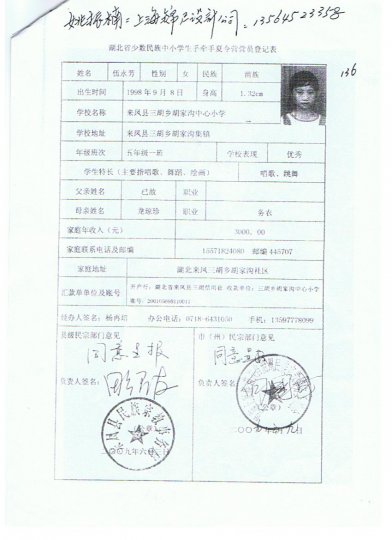 上海 设计公司
湖北省少数民族中小学生手牵手夏令营营员登记表
136
姓名 伍永芳 性别 女 民族 苗族
出生时间 1998年9月8日 身高 1.32cm
学校名称 来凤县三胡乡胡家沟中心小学
学校地址 来凤县三胡乡胡家沟集镇
年级班次 五年级一班 学校表现 优秀
学生特长(主要指唱歌、舞蹈、绘画) 唱歌、跳舞
父亲姓名 已故 职业
母亲姓名 职业 务农
家庭年收入(元) 3000.00
家庭联系电话及邮编 15571824080 邮编 445707
家庭地址 湖北来凤三胡乡胡家沟社区
汇款单单位及账号 开户行:湖北省来凤县三胡信用社 收款单位:三胡乡胡家沟中心小学
账号:
经办人签名: 办公电话:0718-6431050 手机:13597778099
县级民宗部门意见 市(州)民宗部门意见
同意呈报 同意呈报
负责人签名: 负责人签名:
来凤县民族宗教事务局
(公章) (公章)
二〇〇九年六月